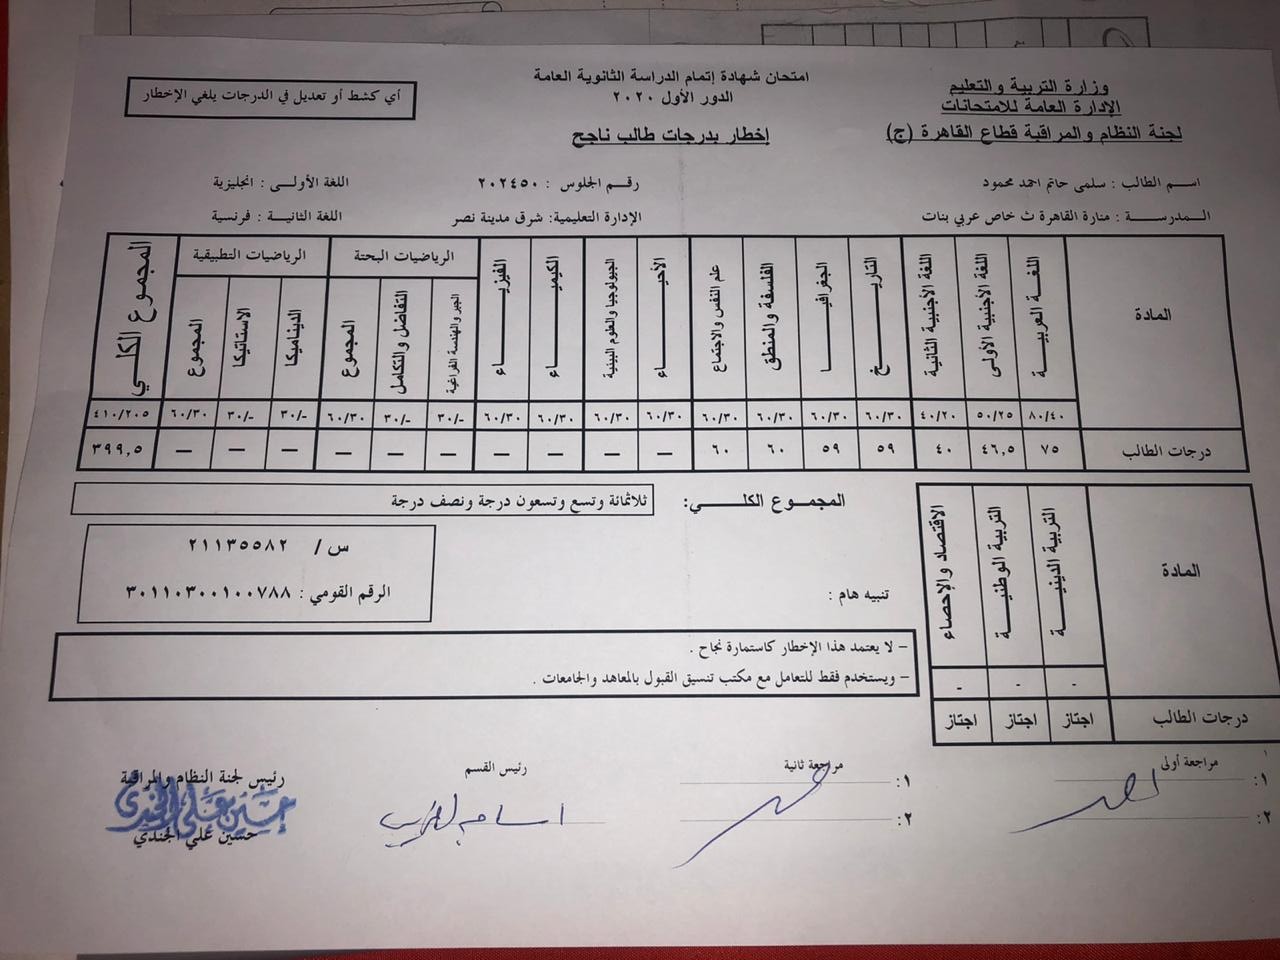 وزارة التربية والتعليم
الإدارة العامة للامتحانات
لجنة النظام والمراقبة قطاع القاهرة (ج)
امتحان شهادة إتمام الدراسة الثانوية العامة
الدور الأول ٢٠٢٠
إخطار بدرجات طالب ناجح
أي كشط أو تعديل في الدرجات يلغي الإخطار
اسم الطالب : سلمى حاتم احمد محمود رقم الجلوس : ٢٠٢٤٥٠ اللغة الأولى : انجليزية
المدرسة : منارة القاهرة ث خاص عربي بنات الإدارة التعليمية: شرق مدينة نصر اللغة الثانية : فرنسية
المادة اللغة العربية اللغة الأجنبية الأولى اللغة الأجنبية الثانية التاريخ الجغرافيا الفلسفة والمنطق علم النفس والاجتماع الأحياء الجيولوجيا والعلوم البيئية الكيمياء الفيزياء الرياضيات البحتة الرياضيات التطبيقية المجموع الكلي
الجبر والهندسة الفراغية التفاضل والتكامل المجموع الديناميكا الاستاتيكا المجموع
٨٠/٤٠ ٥٠/٢٥ ٤٠/٢٠ ٦٠/٣٠ ٦٠/٣٠ ٦٠/٣٠ ٦٠/٣٠ ٦٠/٣٠ ٦٠/٣٠ ٦٠/٣٠ ٦٠/٣٠ ٣٠/- ٣٠/- ٦٠/٣٠ ٣٠/- ٣٠/- ٦٠/٣٠ ٤١٠/٢٠٥
درجات الطالب ٧٥ ٤٦,٥ ٤٠ ٥٩ ٥٩ ٦٠ ٦٠ — — — — — — — — — — ٣٩٩,٥
المجموع الكلي: ثلاثمائة وتسع وتسعون درجة ونصف درجة
المادة التربية الدينية التربية الوطنية الاقتصاد والإحصاء
- - -
درجات الطالب اجتاز اجتاز اجتاز
س / ٢١١٣٥٥٨٢
الرقم القومي : ٣٠١١٠٣٠٠١٠٠٧٨٨
تنبيه هام :
– لا يعتمد هذا الإخطار كاستمارة نجاح .
– ويستخدم فقط للتعامل مع مكتب تنسيق القبول بالمعاهد والجامعات .
مراجعة أولى مراجعة ثانية رئيس القسم رئيس لجنة النظام والمراقبة
١: ١:
٢: ٢:
حسين علي الجندي
حسين علي الجندي